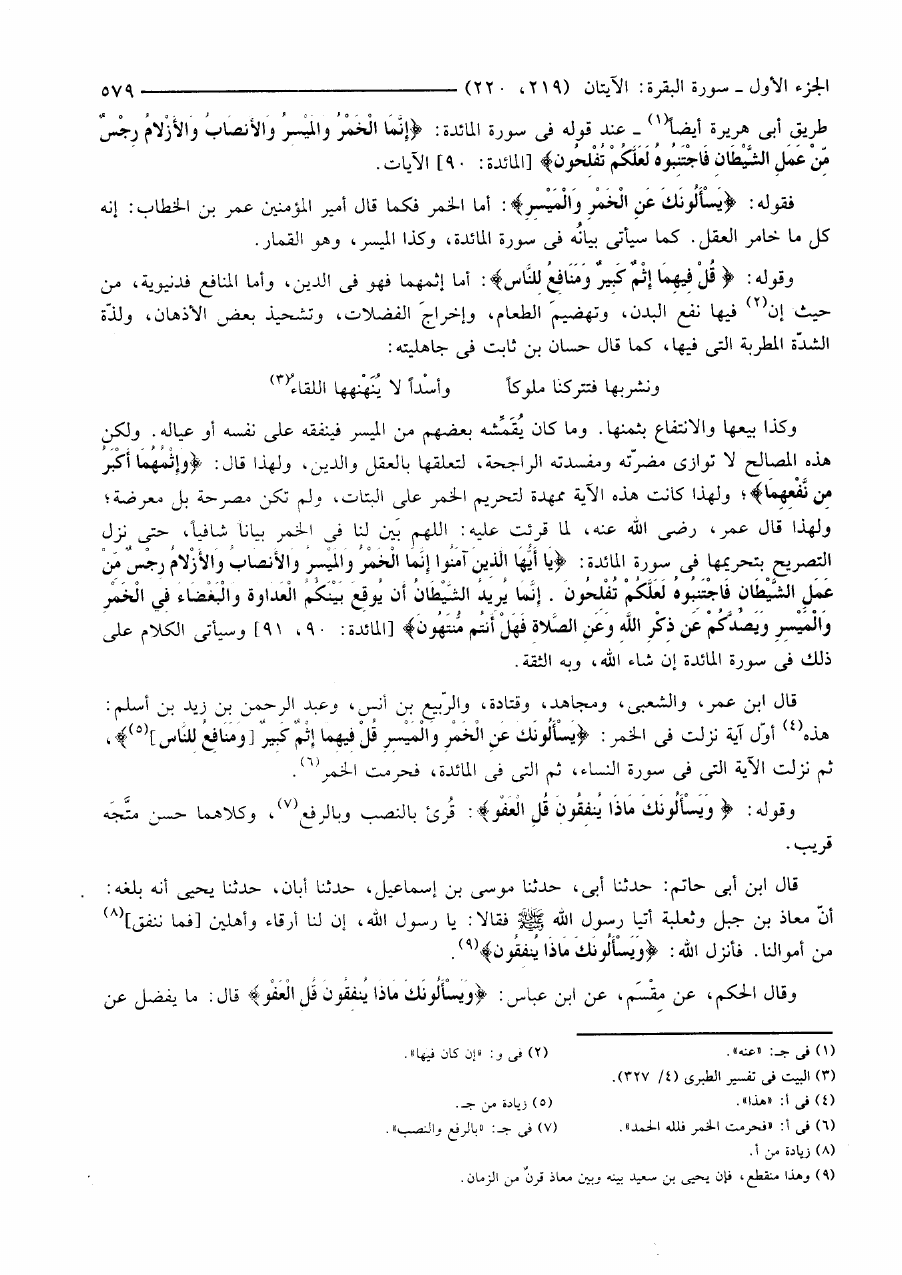 الجزء الأول ـ سورة البقرة: الآيتان (٢١٩، ٢٢٠) ٥٧٩
طريق أبى هريرة أيضاً(١) ـ عند قوله فى سورة المائدة: ﴿إِنَّمَا الْخَمْرُ وَالْمَيْسِرُ وَالأَنصَابُ وَالأَزْلامُ رِجْسٌ
مِّنْ عَمَلِ الشَّيْطَانِ فَاجْتَنِبُوهُ لَعَلَّكُمْ تُفْلِحُونَ﴾ [المائدة: ٩٠] الآيات.
فقوله: ﴿يَسْأَلُونَكَ عَنِ الْخَمْرِ وَالْمَيْسِرِ﴾: أما الخمر فكما قال أمير المؤمنين عمر بن الخطاب: إنه
كل ما خامر العقل. كما سيأتى بيانُه فى سورة المائدة، وكذا الميسر، وهو القمار.
وقوله: ﴿ قُلْ فِيهِمَا إِثْمٌ كَبِيرٌ وَمَنَافِعُ لِلنَّاسِ﴾: أما إثمهما فهو فى الدين، وأما المنافع فدنيوية، من
حيث إن(٢) فيها نفع البدن، وتهضيمَ الطعام، وإخراجَ الفضلات، وتشحيذ بعض الأذهان، ولذّة
الشدّة المطربة التى فيها، كما قال حسان بن ثابت فى جاهليته:
ونشربها فتتركنا ملوكاً وأسْداً لا يُنَهْنهها اللقاءُ(٣)
وكذا بيعها والانتفاع بثمنها. وما كان يُقَمِّشه بعضهم من الميسر فينفقه على نفسه أو عياله. ولكن
هذه المصالح لا توازى مضرّته ومفسدته الراجحة، لتعلقها بالعقل والدين، ولهذا قال: ﴿وَإِثْمُهُمَا أَكْبَرُ
مِن نَّفْعِهِمَا﴾؛ ولهذا كانت هذه الآية ممهدة لتحريم الخمر على البتات، ولم تكن مصرحة بل معرضة؛
ولهذا قال عمر، رضى الله عنه، لما قرئت عليه: اللهم بَين لنا فى الخمر بياناً شافياً، حتى نزل
التصريح بتحريمها فى سورة المائدة: ﴿يَا أَيُّهَا الَّذِينَ آمَنُوا إِنَّمَا الْخَمْرُ وَالْمَيْسِرُ وَالأَنصَابُ وَالأَزْلامُ رِجْسٌ مِّنْ
عَمَلِ الشَّيْطَانِ فَاجْتَنِبُوهُ لَعَلَّكُمْ تُفْلِحُونَ . إِنَّمَا يُرِيدُ الشَّيْطَانُ أَن يُوقِعَ بَيْنَكُمُ الْعَدَاوَةَ وَالْبَغْضَاءَ فِي الْخَمْرِ
وَالْمَيْسِرِ وَيَصُدَّكُمْ عَن ذِكْرِ اللَّهِ وَعَنِ الصَّلاةِ فَهَلْ أَنتُم مُّنتَهُونَ﴾ [المائدة: ٩٠، ٩١] وسيأتى الكلام على
ذلك فى سورة المائدة إن شاء الله، وبه الثقة.
قال ابن عمر، والشعبى، ومجاهد، وقتادة، والرّبيع بن أنس، وعبد الرحمن بن زيد بن أسلم:
هذه(٤) أوّل آية نزلت فى الخمر: ﴿يَسْأَلُونَكَ عَنِ الْخَمْرِ وَالْمَيْسِرِ قُلْ فِيهِمَا إِثْمٌ كَبِيرٌ [وَمَنَافِعُ لِلنَّاسِ](٥)﴾،
ثم نزلت الآية التى فى سورة النساء، ثم التى فى المائدة، فحرمت الخمر(٦).
وقوله: ﴿ وَيَسْأَلُونَكَ مَاذَا يُنفِقُونَ قُلِ الْعَفْوَ﴾: قُرئ بالنصب وبالرفع(٧)، وكلاهما حسن متَّجَه
قريب.
قال ابن أبى حاتم: حدثنا أبى، حدثنا موسى بن إسماعيل، حدثنا أبان، حدثنا يحيى أنه بلغه:
أنّ معاذ بن جبل وثعلبة أتيا رسول الله ﷺ فقالا: يا رسول الله، إن لنا أرقاء وأهلين [فما ننفق](٨)
من أموالنا. فأنزل الله: ﴿وَيَسْأَلُونَكَ مَاذَا يُنفِقُونَ﴾(٩).
وقال الحكم، عن مِقْسَم، عن ابن عباس: ﴿وَيَسْأَلُونَكَ مَاذَا يُنفِقُونَ قُلِ الْعَفْوَ﴾ قال: ما يفضل عن
(١) فى جـ: «عنه». (٢) فى و: «إن كان فيها».
(٣) البيت فى تفسير الطبرى (٤/ ٣٢٧).
(٤) فى أ: «هذا». (٥) زيادة من جـ.
(٦) فى أ: «فحرمت الخمر فلله الحمد». (٧) فى جـ: «بالرفع والنصب».
(٨) زيادة من أ.
(٩) وهذا منقطع، فإن يحيى بن سعيد بينه وبين معاذ قرنٌ من الزمان.